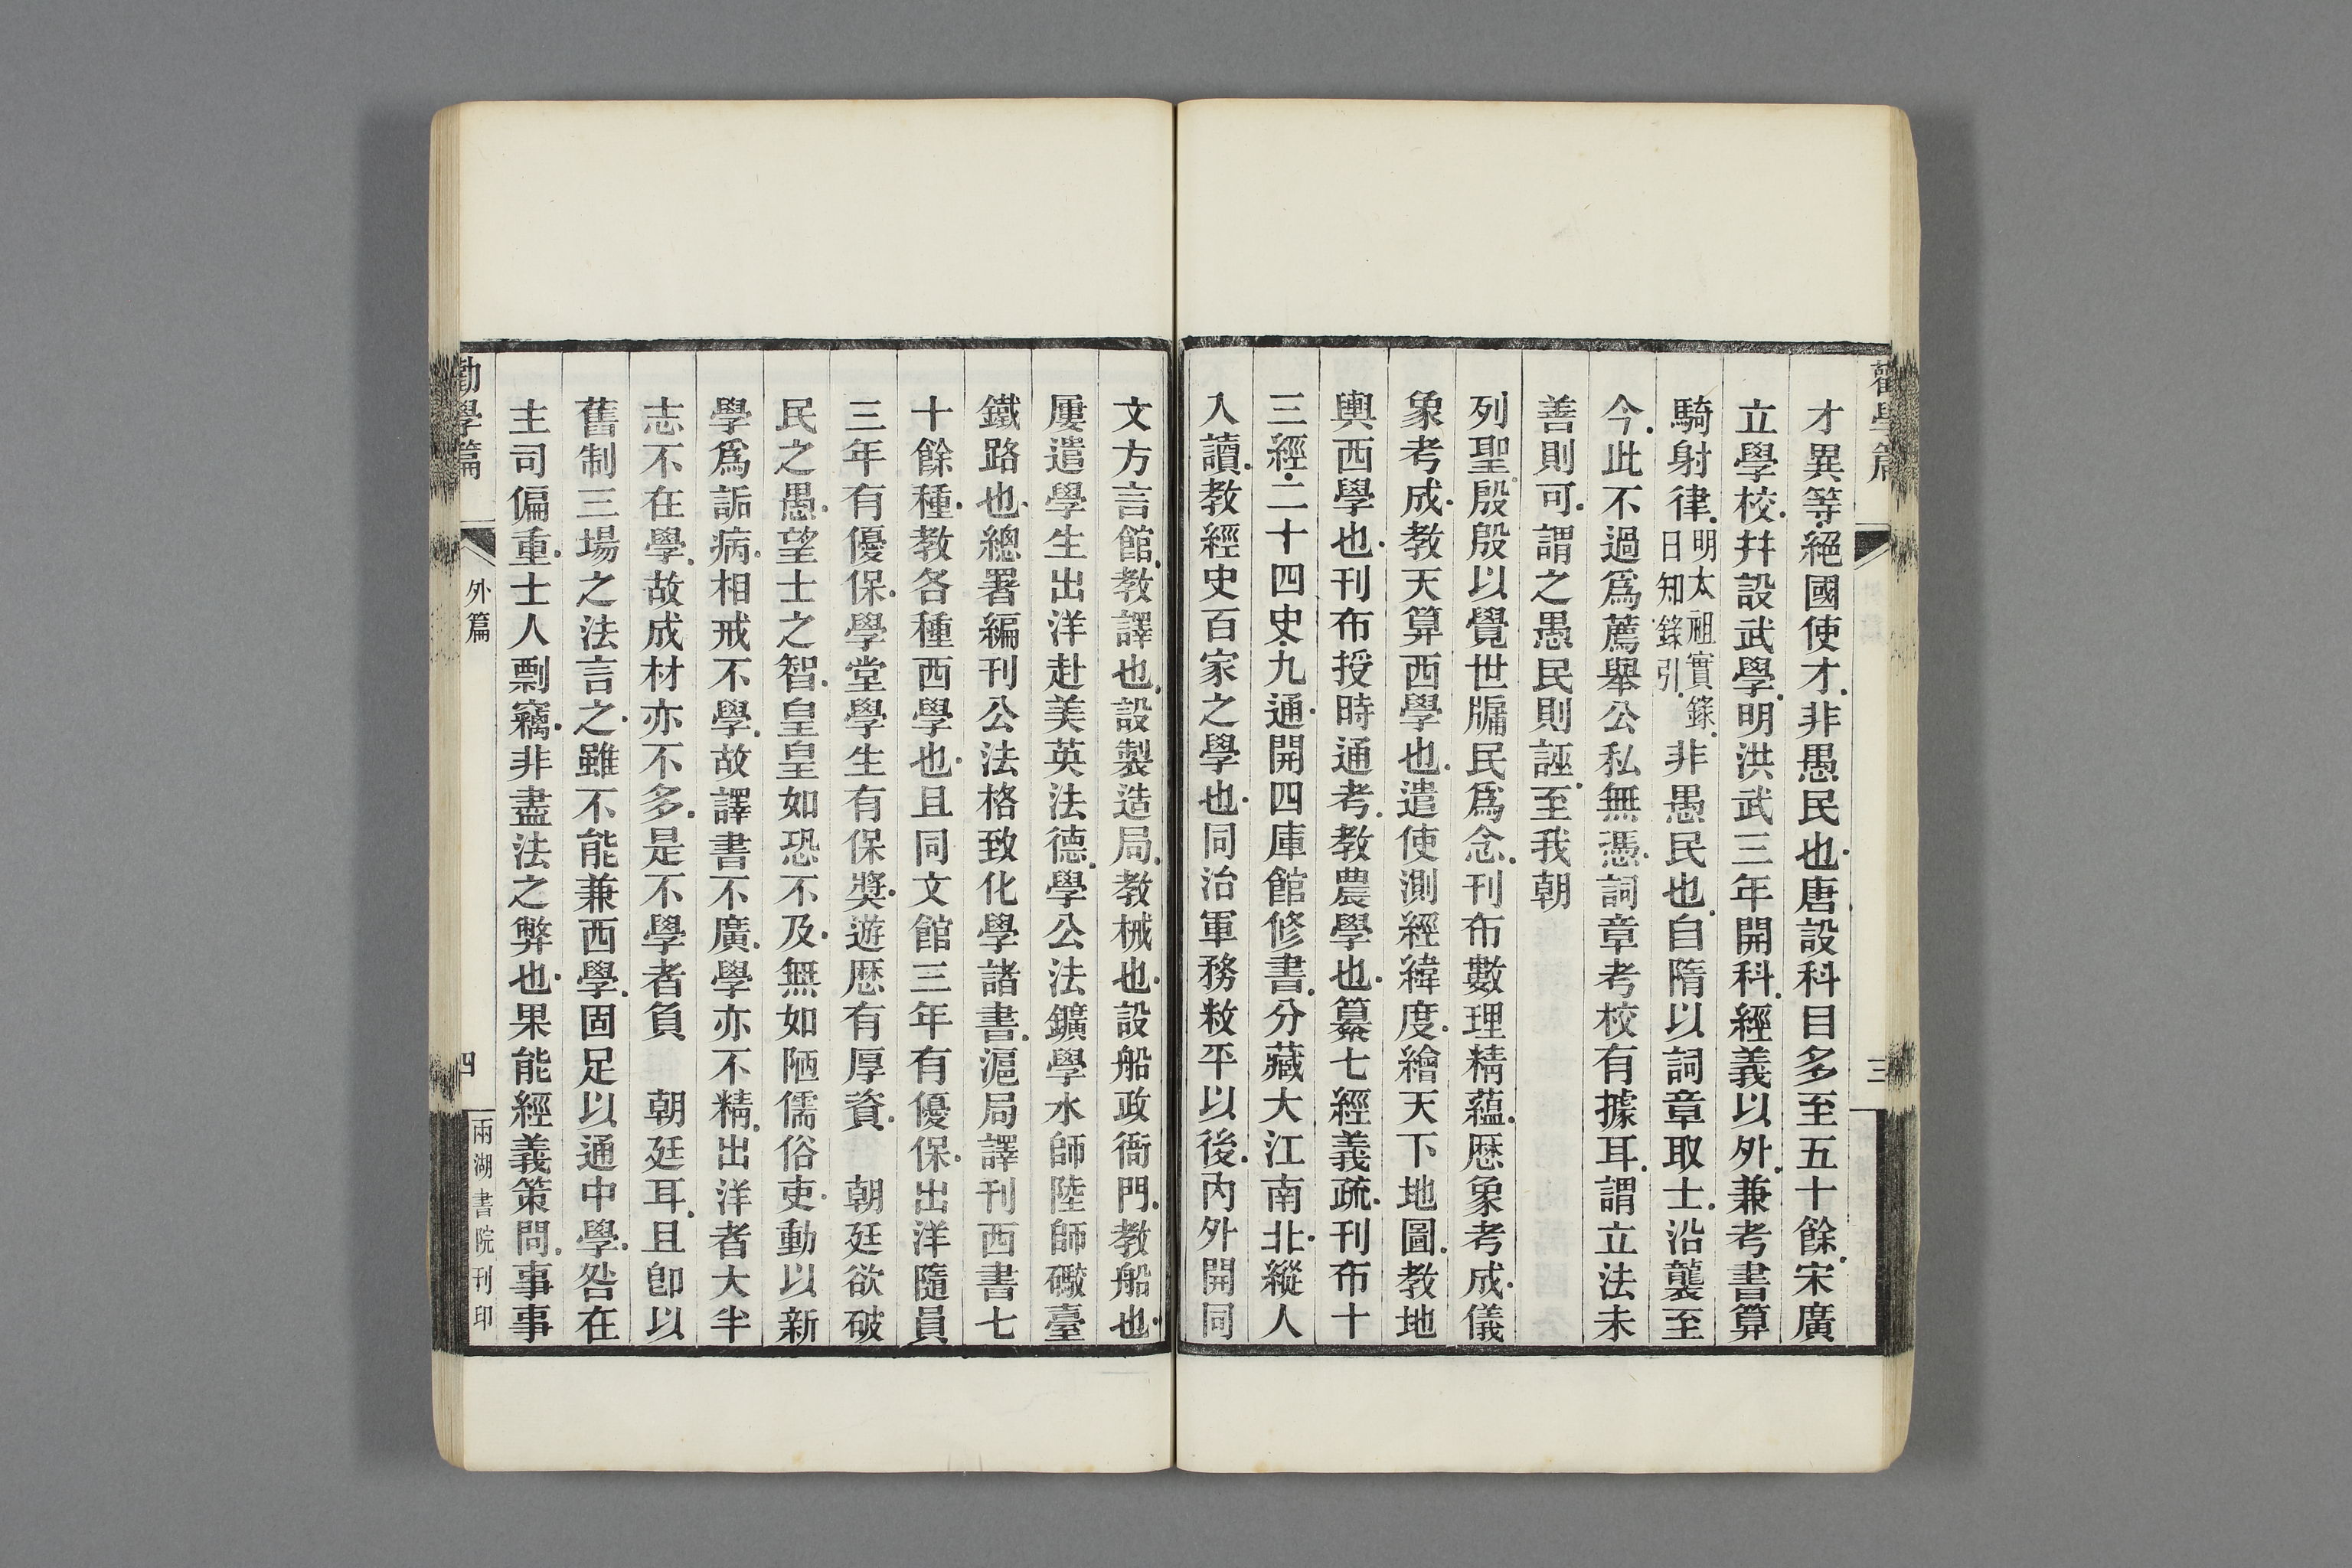 勸學篇
三
才異等.絕國使才.非愚民也.唐設科目多至五十餘.宋廣
立學校.幷設武學.明洪武三年開科.經義以外.兼考書算
騎射律.明太祖實錄.日知錄引非愚民也.自隋以詞章取士.沿襲至
今.此不過爲薦舉公私無憑.詞章考校有據耳.謂立法未
善則可.謂之愚民則誣.至我朝
列聖.殷殷以覺世牖民爲念.刊布數理精蘊.歷象考成.儀
象考成.教天算西學也.遣使測經緯度.繪天下地圖.教地
輿西學也.刊布授時通考.教農學也.纂七經義疏.刊布十
三經.二十四史.九通.開四庫館修書.分藏大江南北.縱人
入讀.教經史百家之學也.同治軍務敉平以後.內外開同
文方言館.教譯也.設製造局.教械也.設船政衙門.教船也.
屢遣學生出洋赴美英法德.學公法鑛學水師陸師礮臺
鐵路也.總署編刊公法格致化學諸書.滬局譯刊西書七
十餘種.教各種西學也.且同文館三年有優保.出洋隨員
三年有優保.學堂學生有保獎.遊歷有厚資. 朝廷欲破
民之愚.望士之智.皇皇如恐不及.無如陋儒俗吏.動以新
學爲詬病.相戒不學.故譯書不廣.學亦不精.出洋者大半
志不在學.故成材亦不多.是不學者負 朝廷耳.且卽以
舊制三場之法言之.雖不能兼西學.固足以通中學.咎在
主司偏重.士人剽竊.非盡法之弊也.果能經義策問.事事
勸學篇
外篇
四
兩湖書院刊印